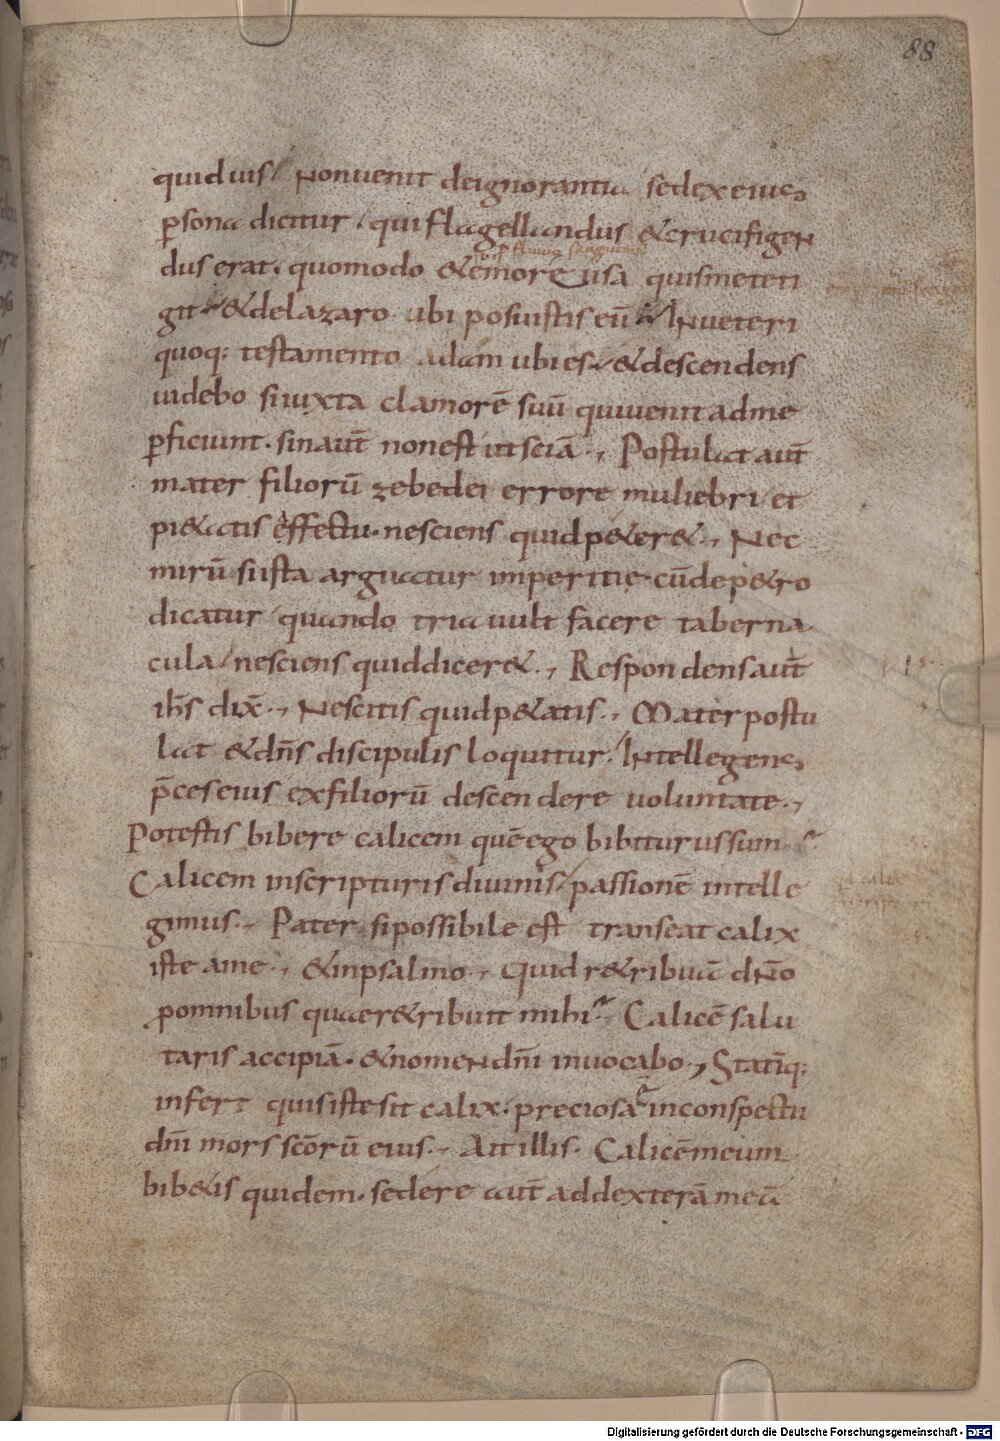 88
quid uis / Non uenit de ignorantia sed ex eius
p̄sona dicitur / qui flagellandus & crucifigen
dus erat. quomodo & emorousa quis me teti
git & de lazaro ubi posuistis eū In ueteri
quoq; testamento adam ubi es / & descendens
uidebo si iuxta clamorē suū qui uenit ad me
p̄ficiunt. sin aut̄ non est ut sciā., Postulat aut̄
mater filiorū zebedei errore muliebri et
pi&atis effectu. nesciens quid p&er&., Nec
mirū si ista arguatur imperitie. cū de p&ro
dicatur / quando tria uult facere taberna
cula / nesciens quid dicer&., Respondens aut̄
ih̄s dix̄., Nescitis quid p&atis., Mater postu
lat & dn̄s discipulis loquitur / Intellegens
p̄ces eius ex filiorū descendere uoluntate.,
Potestis bibere calicem quē ego bibiturus sum
Calicem in scripturis diuinis / passionē intelle
gimus., Pater si possibile est transeat calix
iste a me., & in psalmo., Quid r&ribuā dn̄o
p omnibus quae r&ribuit mihi Calicē salu
taris accipiā. & nomen dn̄i inuocabo., Statīq;
infert quis iste sit calix. preciosa in conspectu
dn̄i mors sc̄orū eius., Ait illis. Calicē meum
bib&is quidem. sedere aut̄ ad dexterā meā
Digitalisierung gefördert durch die Deutsche Forschungsgemeinschaft - DFG